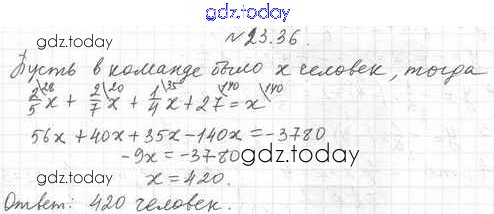 gdz.today
gdz.today
№23.36.
Пусть в команде было x человек, тогда
2/5 x + 2/7 x + 1/4 x + 27 = x \28 \20 \35 \140 \140
56x + 40x + 35x - 140x = -3780
-9x = -3780 gdz.today
gdz.today x = 420.
Ответ: 420 человек.